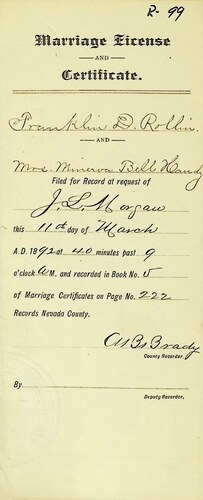 R-99
Marriage License
AND
Certificate.
Franklin D. Rollin.
AND
Mrs. Minerva Bell Handy
Filed for Record at request of
J. L. Morgan
this 11th day of March
A.D. 1892 at 40 minutes past 9
o'clock A M. and recorded in Book No. 5
of Marriage Certificates on Page No. 222
Records Nevada County.
Brady
County Recorder.
By
Deputy Recorder.